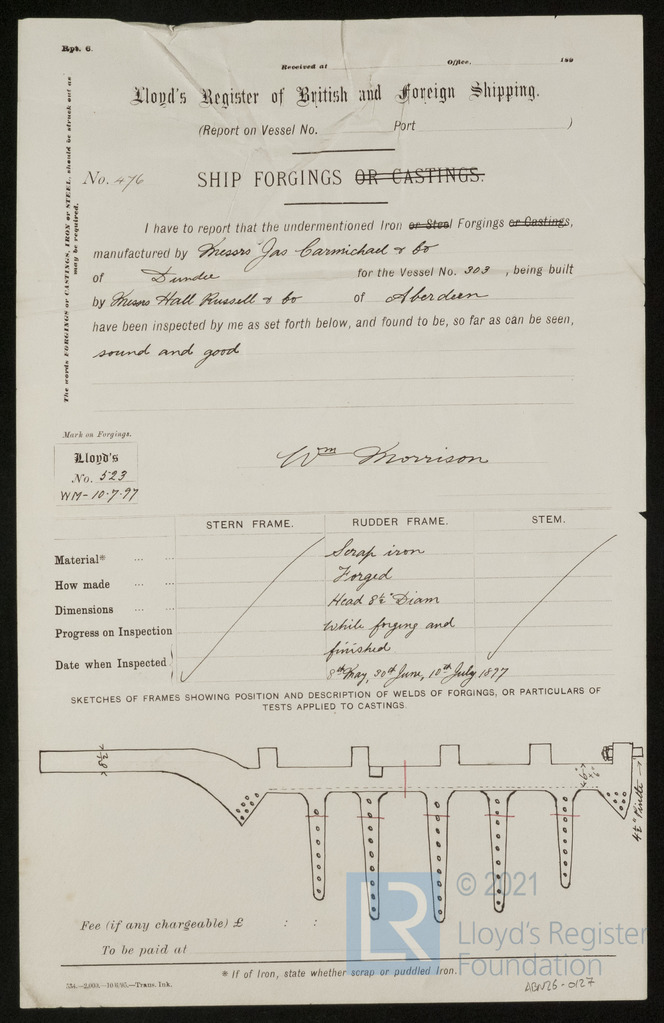 Rpt. 6.
Received at Office, 189
Lloyd's Register of British and Foreign Shipping.
(Report on Vessel No. Port )
No. 476
SHIP FORGINGS OR CASTINGS.
The words FORGINGS or CASTINGS, IRON or STEEL, should be struck out as
may be required.
I have to report that the undermentioned Iron or Steel Forgings or Castings,
manufactured by Messrs Jas Carmichael & Co
of Dundee for the Vessel No. 303 , being built
by Messrs Hall Russell & Co of Aberdeen
have been inspected by me as set forth below, and found to be, so far as can be seen,
sound and good
Mark on Forgings.
Lloyd's
No. 523
WM-10-7-97
Wm Morrison
STERN FRAME. RUDDER FRAME. STEM.
Material* ... ... Scrap iron
How made ... ... Forged
Dimensions ... ... Head 8½" Diam
Progress on Inspection While forging and
finished
Date when Inspected 8th May, 30th June, 10th July 1897
SKETCHES OF FRAMES SHOWING POSITION AND DESCRIPTION OF WELDS OF FORGINGS, OR PARTICULARS OF
TESTS APPLIED TO CASTINGS.
8½"
4½" Pintle
Fee (if any chargeable) £ : :
To be paid at
* If of Iron, state whether scrap or puddled Iron.
534.—2,000.—10/6/95.—Trans. Ink.
ABN26-0127
LR
© 2021
Lloyd's Register
Foundation